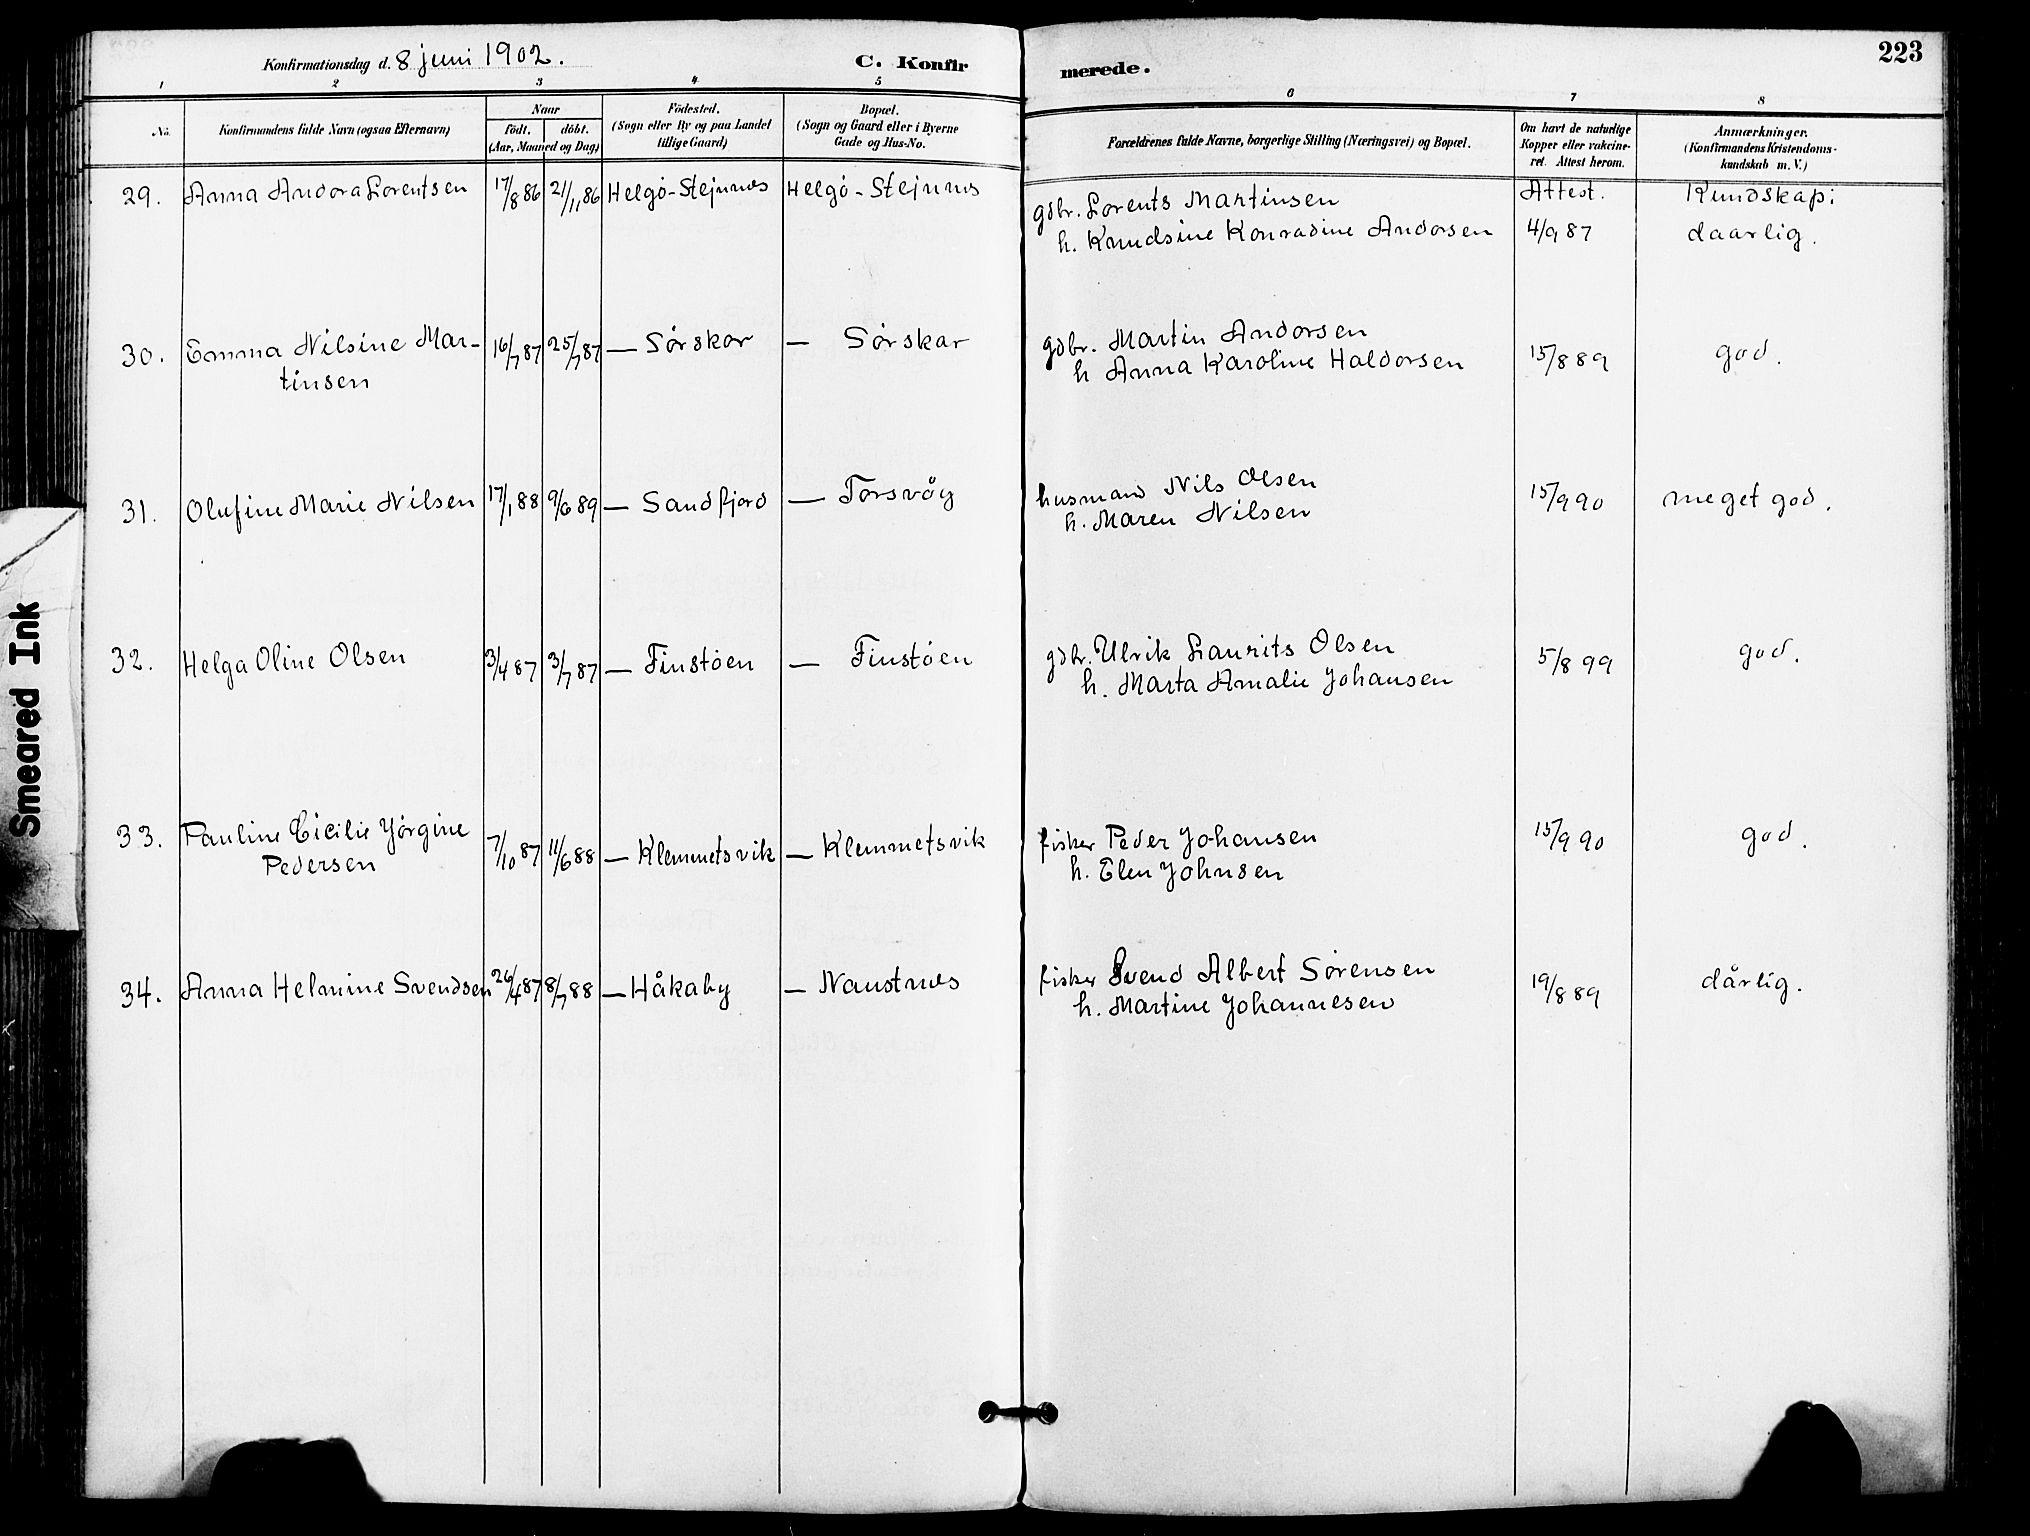 Konfirmationsdag d. 8 juni 1902.
C. Konfirmerede.
223
1 2 3 4 5 6 7 8
No.
Konfirmandens fulde Navn (ogsaa Efternavn)
Naar
födt. döbt.
(Aar, Maaned og Dag)
Födested.
(Sogn eller By og paa Landet
tillige Gaard)
Bopæl.
(Sogn og Gaard eller i Byerne
Gade og Hus-No.
Forældrenes fulde Navne, borgerlige Stilling (Næringsvei) og Bopæl.
Om havt de naturlige
Kopper eller vakcine-
ret. Attest herom.
Anmærkninger.
(Konfirmandens Kristendoms-
kundskab m. V.)
29. Anna Andora Lorentsen 17/8 86 21/11 86 Helgö-Stejnnæs Helgö-Stejnnæs gdbr. Lorents Martinsen Attest. Kundskap:
h. Knudsine Konradine Andorsen 4/9 87 daarlig.
30. Emma Nilsine Mar- 16/7 87 25/7 87 — Sørskar — Sørskar gdbr. Martin Andorsen 15/8 89 god.
tinsen h Anna Karoline Haldorsen
31. Olufine Marie Nilsen 17/1 88 9/6 89 — Sandfjord — Torsvög husmand Nils Olsen 15/9 90 meget god.
h. Maren Nilsen
32. Helga Oline Olsen 3/4 87 3/7 87 — Finstöen — Finstöen gdbr. Ulrik Laurits Olsen 5/8 99 god.
h. Marta Amalie Johansen
33. Pauline Cicilie Jørgine 7/10 87 11/6 88 — Klemmetsvik — Klemmetsvik fisker Peder Johansen 15/9 90 god.
Pedersen h. Elen Johnsen
34. Anna Helmine Svendsen 26/4 87 8/7 88 — Håkaby — Naustnæs fisker Svend Albert Sørensen 19/8 89 dårlig.
h. Martine Johannesen
Smeared Ink